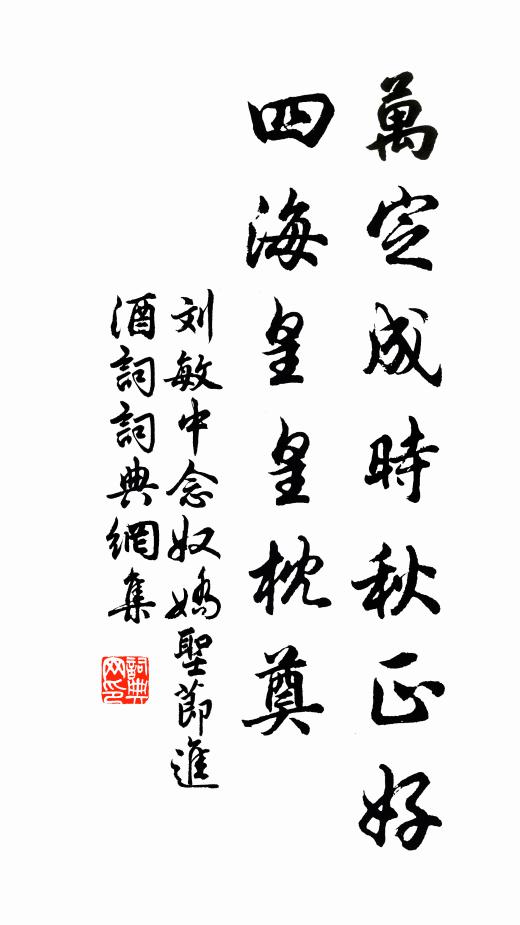 萬宝成時秋正好
四海皇皇枕奠
刘敏中念奴嬌聖節進
酒詞詞典網集
詞典網印